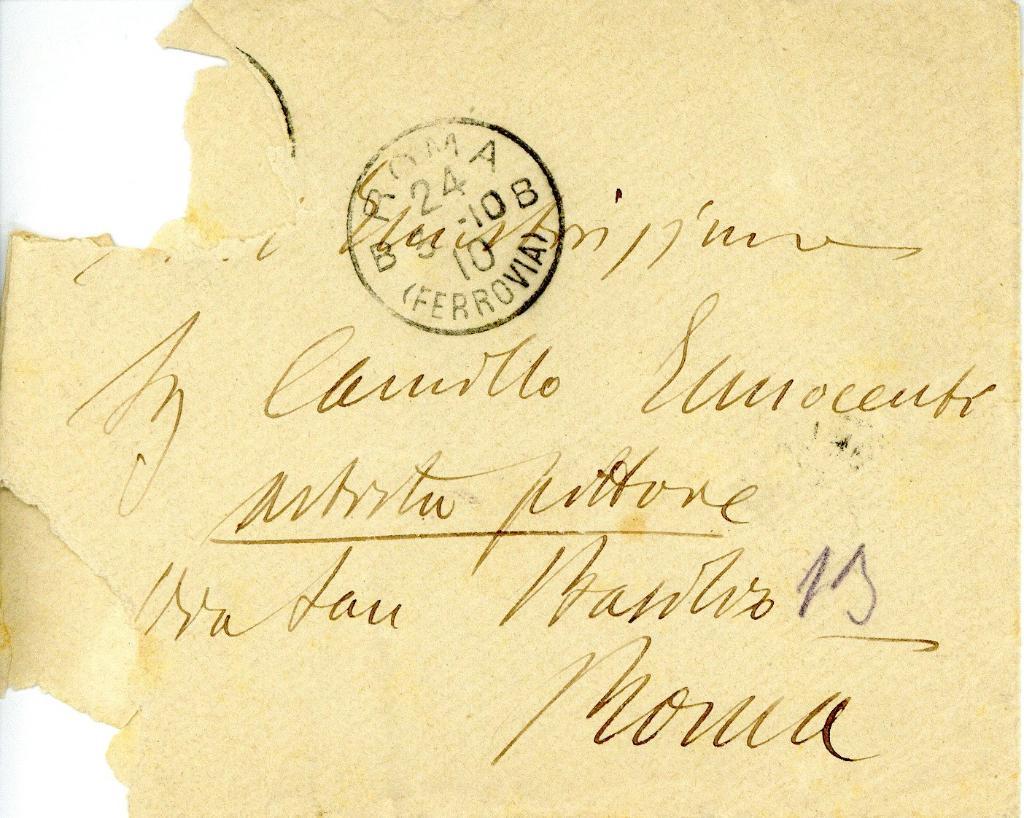 ROMA
24
B 5-10 B
10
(FERROVIA)
Illustrissimo
Sig Camillo Innocenti
artista pittore
Via San Basilio 13
Roma